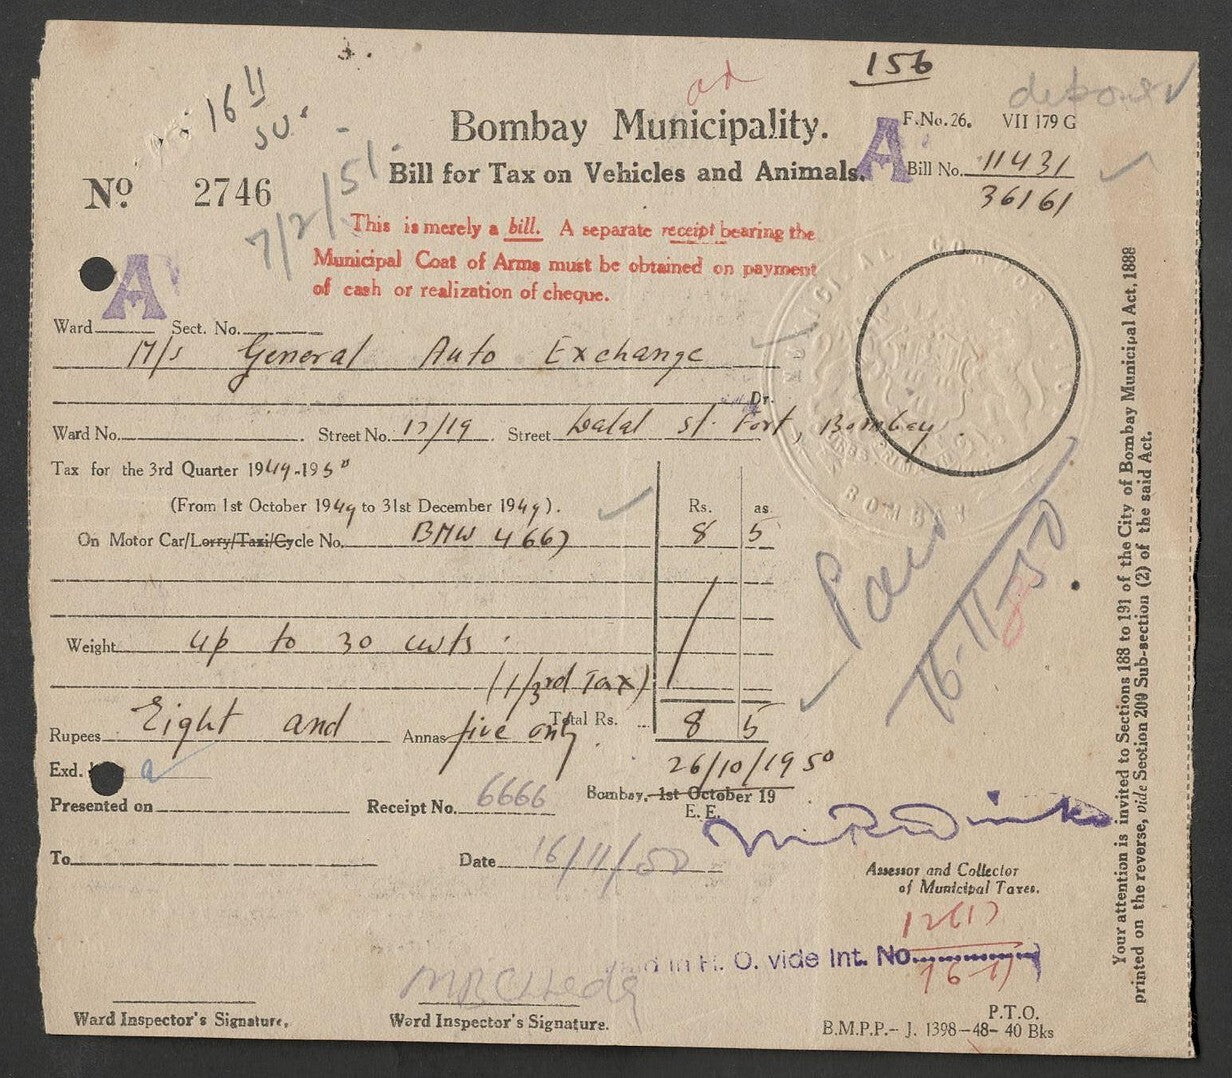 156
16 11
50
Bombay Municipality.
F.No.26. VII 179 G
Bill for Tax on Vehicles and Animals.
A
Bill No. 11431
36161
No. 2746
7/2/51
This is merely a bill. A separate receipt bearing the
Municipal Coat of Arms must be obtained on payment
of cash or realization of cheque.
A
Ward Sect. No.
M/s General Auto Exchange
Dr.
Ward No. Street No. 17/19 Street Dalal St. Fort, Bombay.
Tax for the 3rd Quarter 1949-1950
(From 1st October 1949 to 31st December 1949).
Rs. as.
On Motor Car/Lorry/Taxi/Cycle No. BMW 4667 8 5
Weight up to 30 cwts.
(1/3rd Tax)
Total Rs. 8 5
Rupees Eight and Annas five only.
26/10/1950
Exd.
Bombay, 1st October 19
E. E.
Presented on Receipt No. 6666
To Date 16/11/50
Paid
16-11-50
Assessor and Collector
of Municipal Taxes.
12617
16-11
in H. O. vide Int. No.
Ward Inspector's Signature. Ward Inspector's Signature.
P.T.O.
B.M.P.P.- J. 1398-48- 40 Bks
Your attention is invited to Sections 188 to 191 of the City of Bombay Municipal Act, 1888
printed on the reverse, vide Section 209 Sub-section (2) of the said Act.
BOMBAY